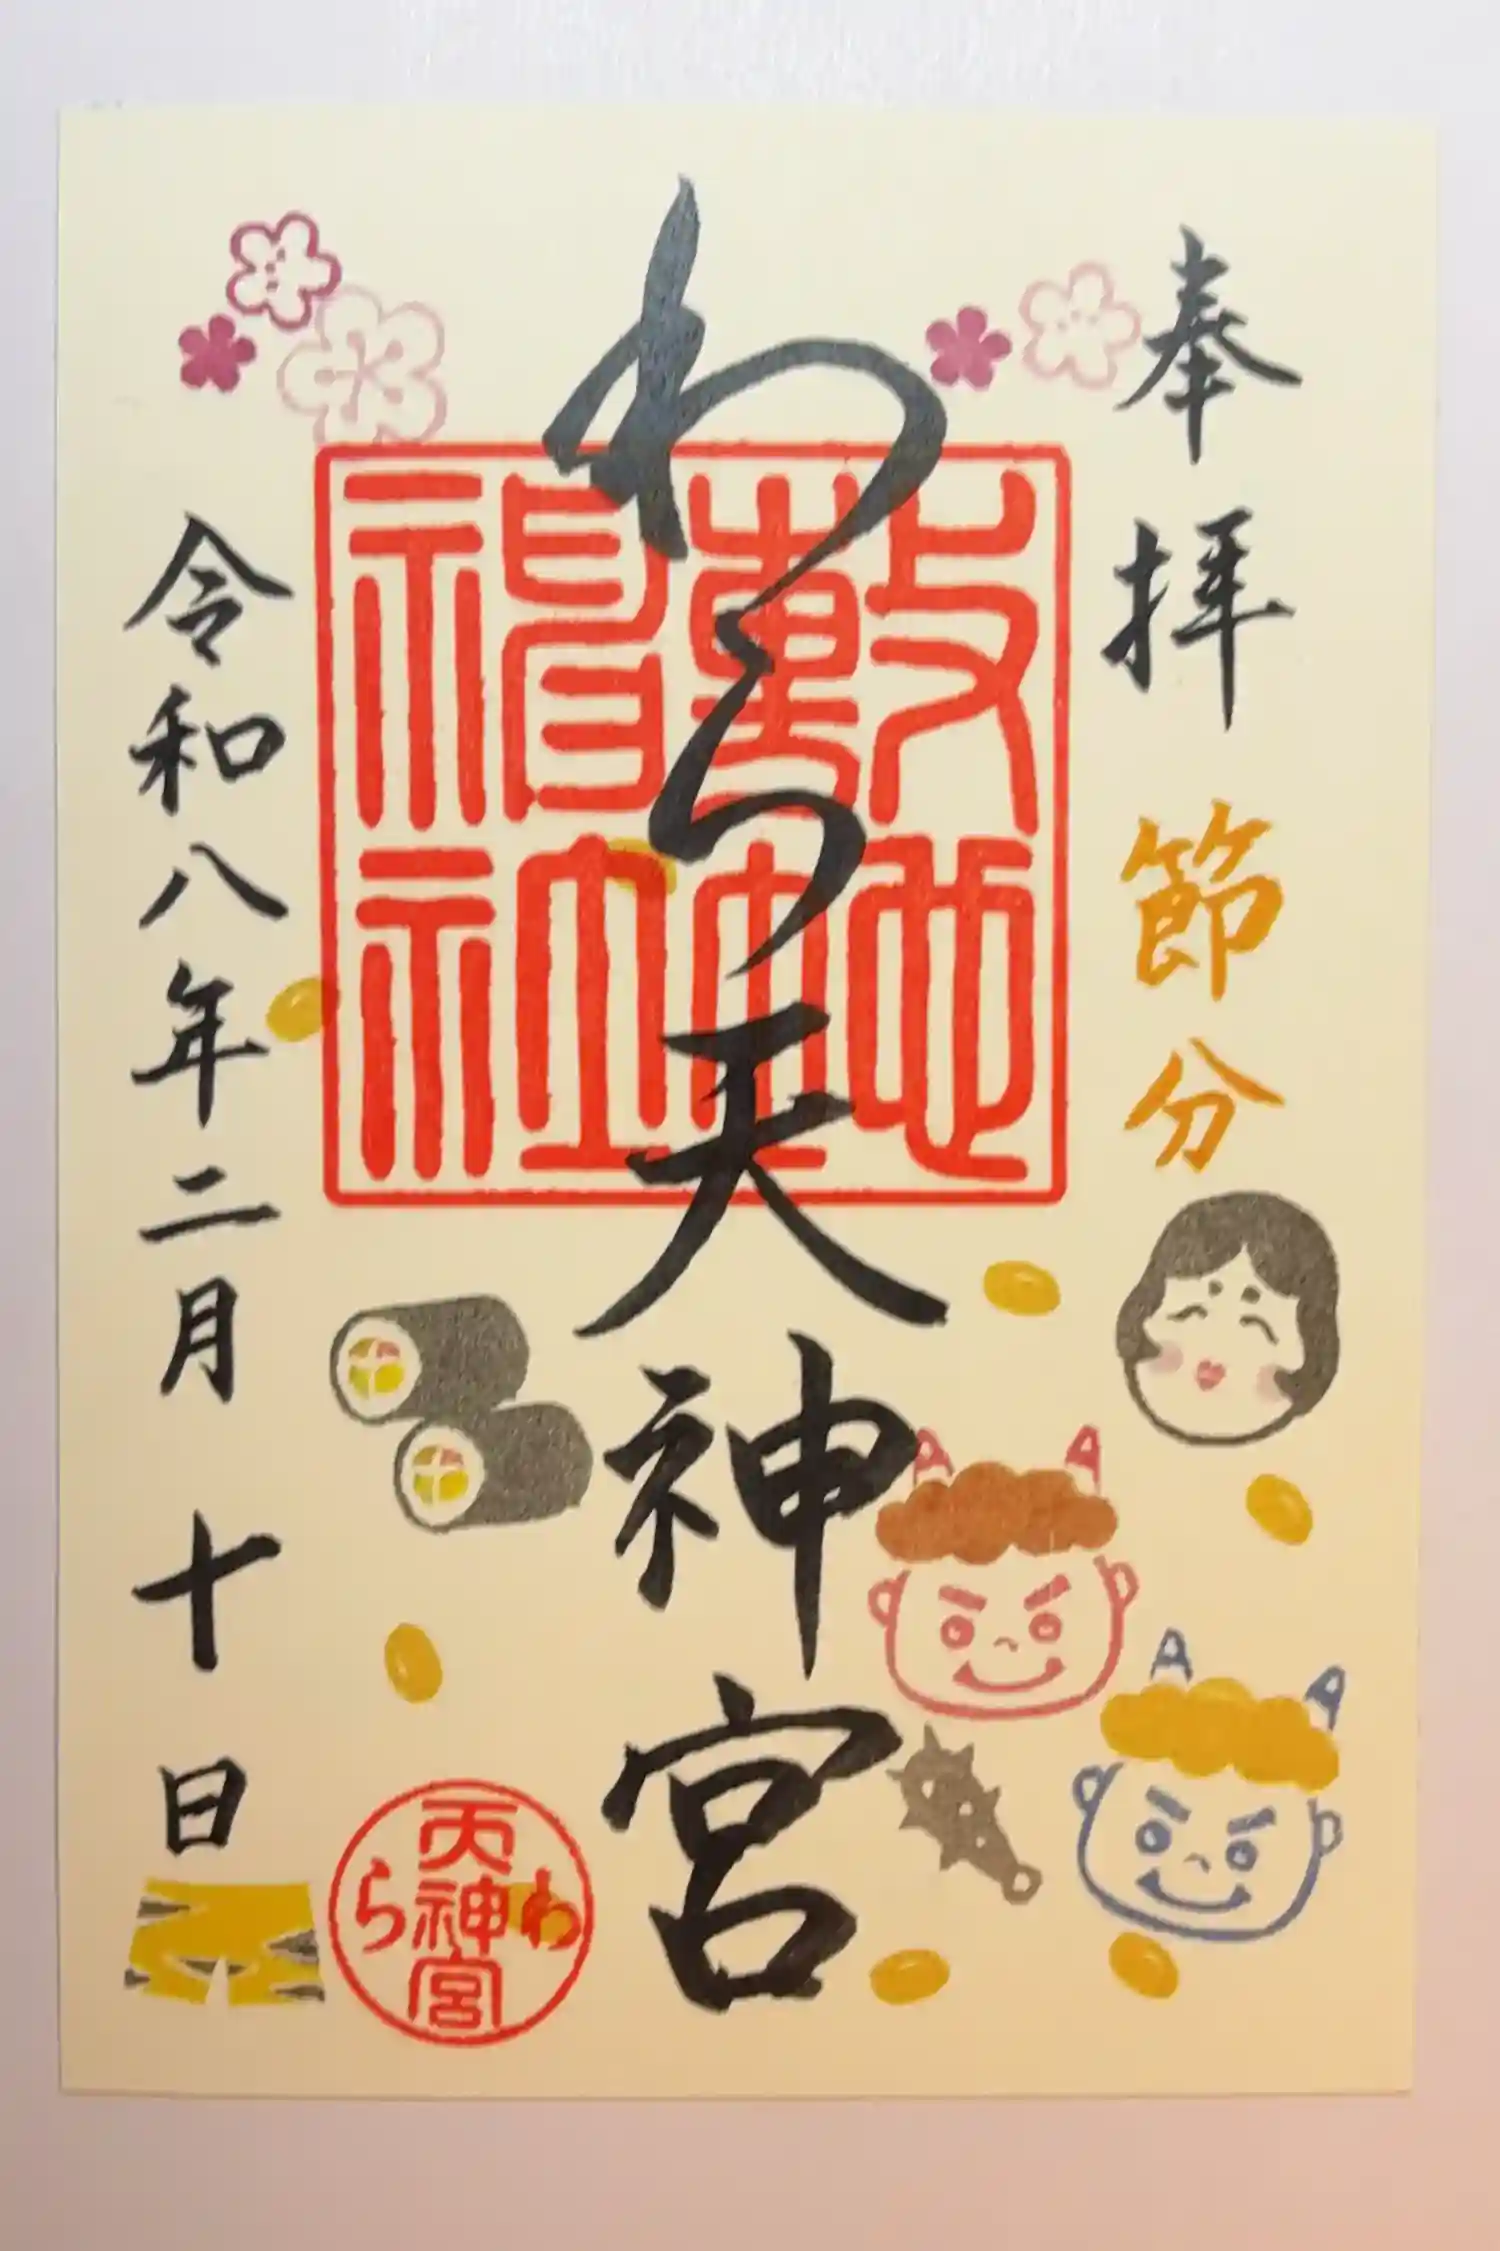 奉拝
節分
わら天神宮
敷地神社
六勝神社
令和八年二月十日
わら天神宮